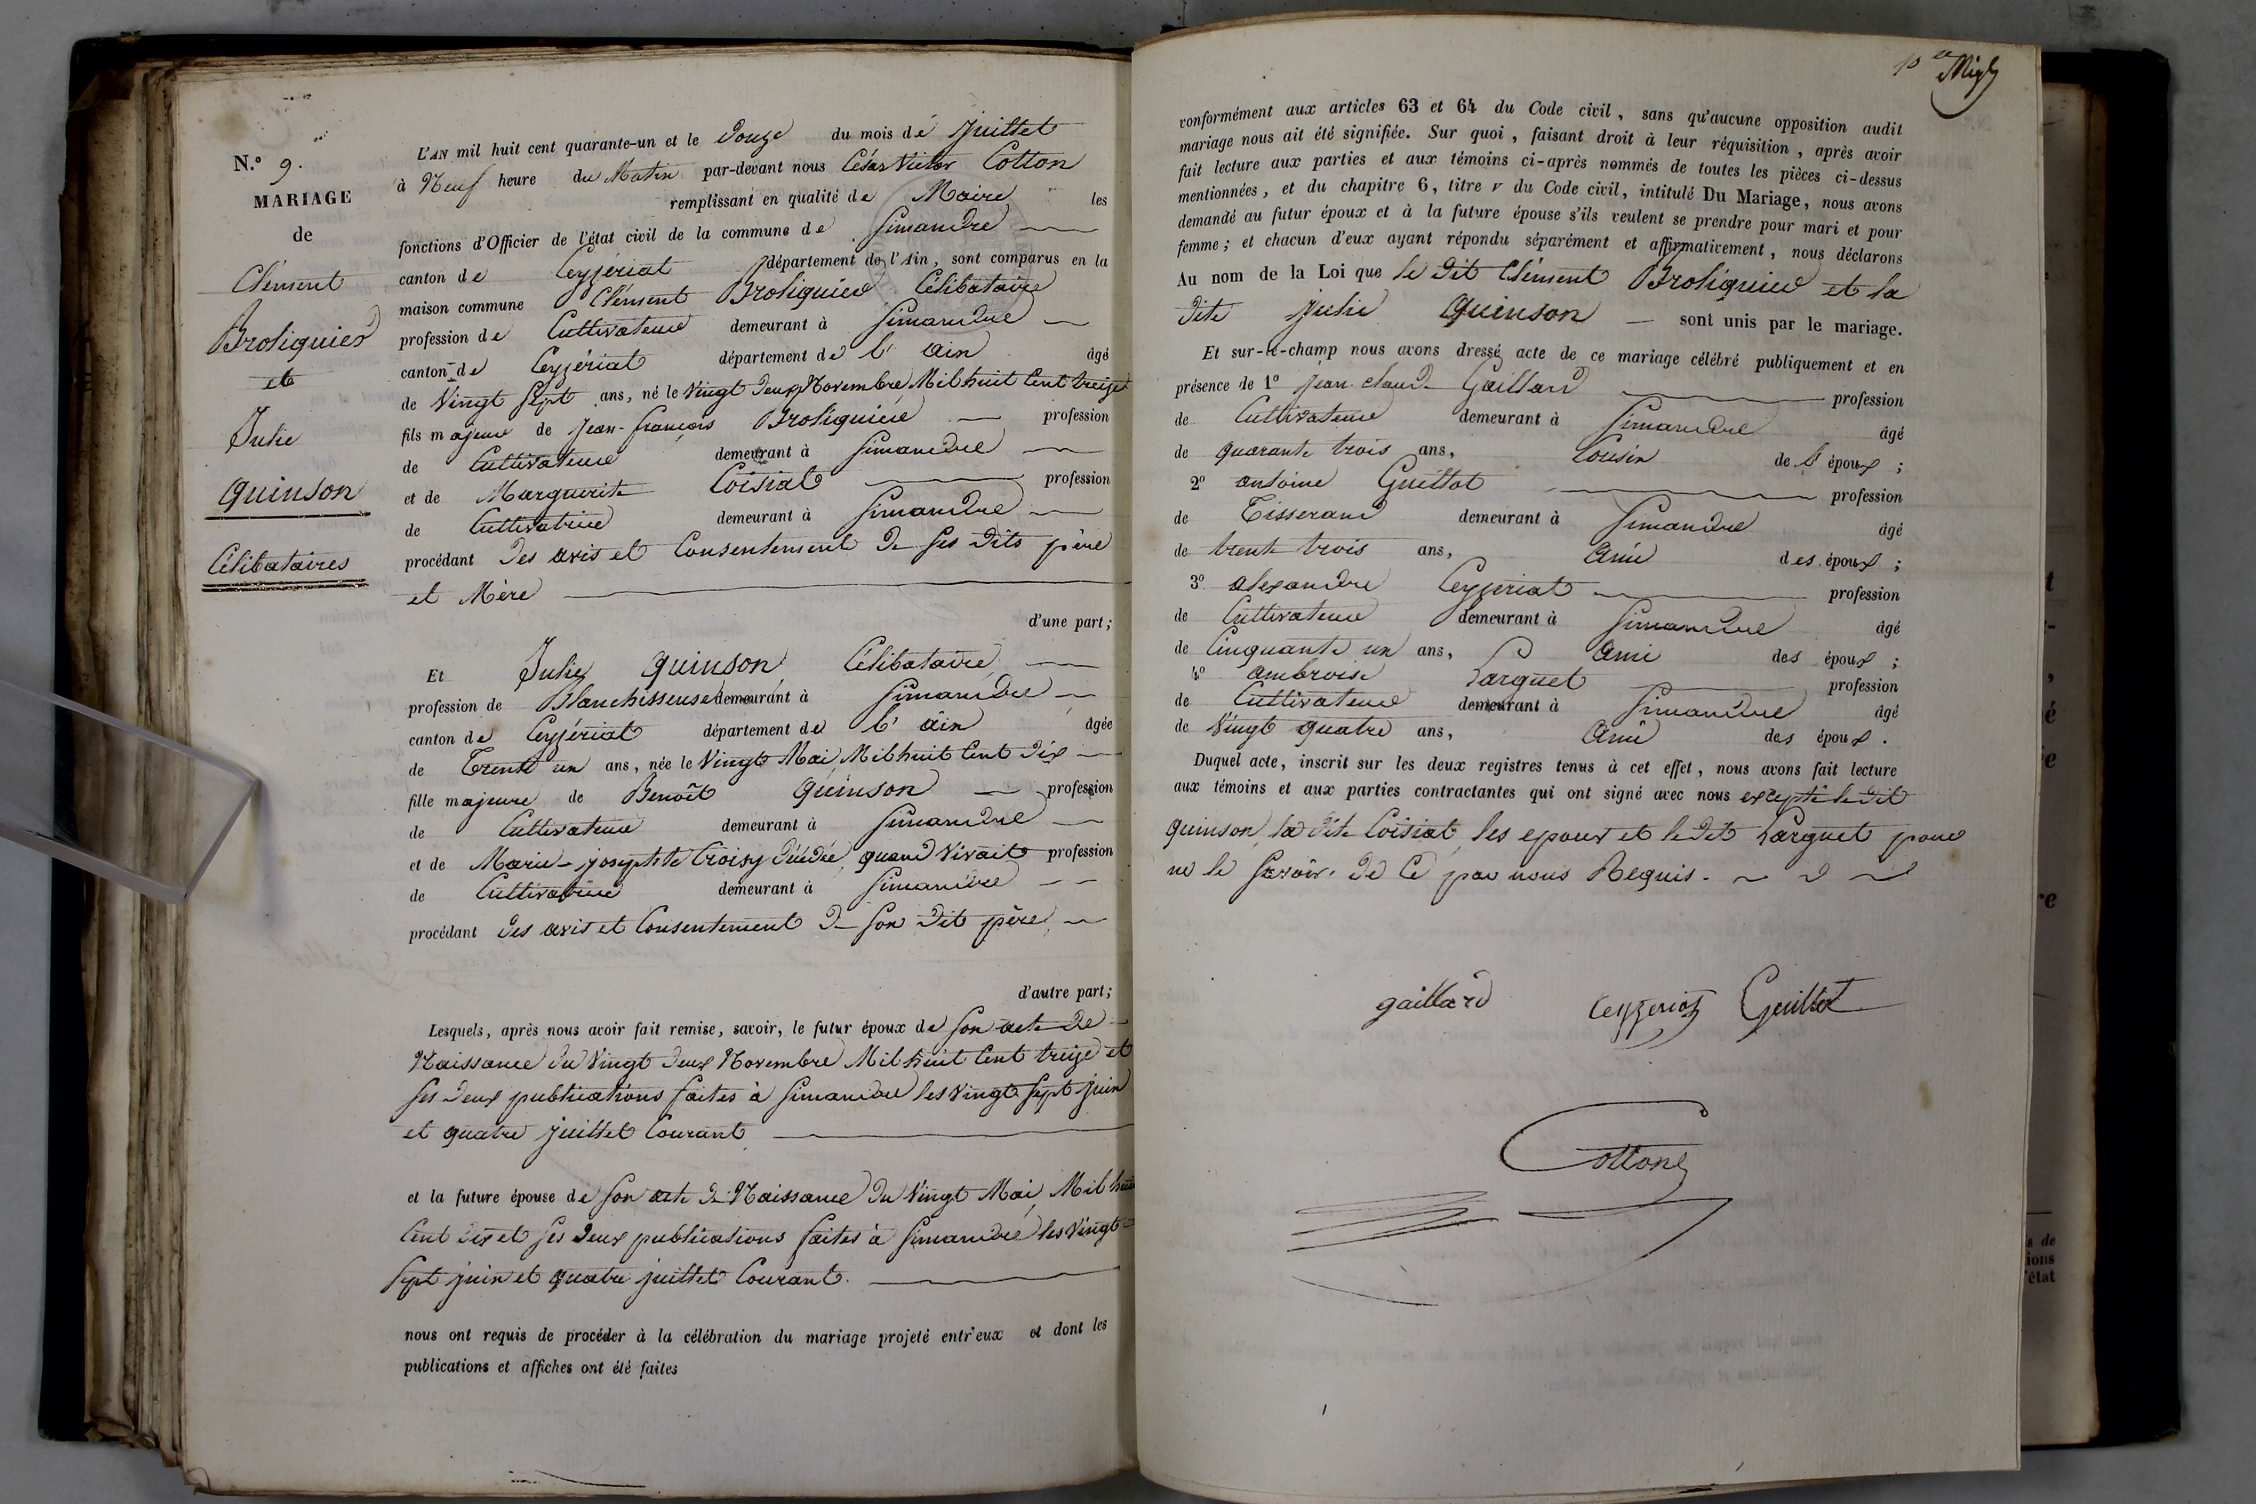 N.º 9.
MARIAGE
de
Clément
Broliquier
et
Julie
quinson
Célibataires
L'AN mil huit cent quarante-un et le Douze du mois de Juillet
à Neuf heure du Matin par-devant nous César Victor Cotton
remplissant en qualité de Maire les
fonctions d'Officier de l'état civil de la commune de Simandre
canton de Ceyzériat département de l'Ain, sont comparus en la
maison commune Clément Broliquier Célibataire
profession de Cultivateur demeurant à Simandre
canton de Ceyzériat département de l'ain âgé
de Vingt Sept ans, né le Vingt Deux Novembre Mil huit Cent treize
fils majeur de Jean-françois Broliquier profession
de Cultivateur demeurant à Simandre
et de Marguerite Coisiat profession
de Cultivatrice demeurant à Simandre
procédant Des avis et Consentement De Ses Dits père
et Mère
d'une part;
Et Julie quinson Célibataire
profession de Blanchisseuse demeurant à Simandre
canton de Ceyzériat département de l'ain âgée
de Trente un ans, née le Vingt Mai Mil huit Cent Dix
fille majeure de Benoît quinson profession
de Cultivateur demeurant à Simandre
et de Marie-josephte Croisy Décédée, quand Vivait profession
de Cultivatrice demeurant à Simandre
procédant Des avis et Consentement De Son Dit père
d'autre part;
Lesquels, après nous avoir fait remise, savoir, le futur époux de Son acte De
Naissance Du Vingt Deux Novembre Mil huit Cent treize et
Ses Deux publications faites à Simandre les Vingt Sept juin
et quatre juillet Courant
et la future épouse de Son acte De Naissance Du Vingt Mai Mil huit
Cent Dix et Ses Deux publications faites à Simandre les Vingt
Sept juin et quatre juillet Courant.
nous ont requis de procéder à la célébration du mariage projeté entr'eux et dont les
publications et affiches ont été faites
conformément aux articles 63 et 64 du Code civil, sans qu'aucune opposition audit
mariage nous ait été signifiée. Sur quoi, faisant droit à leur réquisition, après avoir
fait lecture aux parties et aux témoins ci-après nommés de toutes les pièces ci-dessus
mentionnées, et du chapitre 6, titre v du Code civil, intitulé Du Mariage, nous avons
demandé au futur époux et à la future épouse s'ils veulent se prendre pour mari et pour
femme; et chacun d'eux ayant répondu séparément et affirmativement, nous déclarons
Au nom de la Loi que le Dit Clément Broliquier et la
Dite Julie Quinson sont unis par le mariage.
Et sur-le-champ nous avons dressé acte de ce mariage célébré publiquement et en
présence de 1º Jean Claude Gaillard profession
de Cultivateur demeurant à Simandre âgé
de quarante trois ans, Cousin de l'époux;
2º antoine Guillot profession
de Tisserand demeurant à Simandre âgé
de trente trois ans, ami des époux;
3º alexandre Ceyzeriat profession
de Cultivateur demeurant à Simandre âgé
de Cinquante un ans, ami des époux;
4º ambroise Larguet profession
de Cultivateur demeurant à Simandre âgé
de Vingt quatre ans, ami des époux.
Duquel acte, inscrit sur les deux registres tenus à cet effet, nous avons fait lecture
aux témoins et aux parties contractantes qui ont signé avec nous excepté le Dit
quinson, la Dite Coisiat, les epoux et le Dit Larguet pour
ne le Savoir. De Ce par nous Requis.
gaillard Ceyzeriat Guillot
Cotton